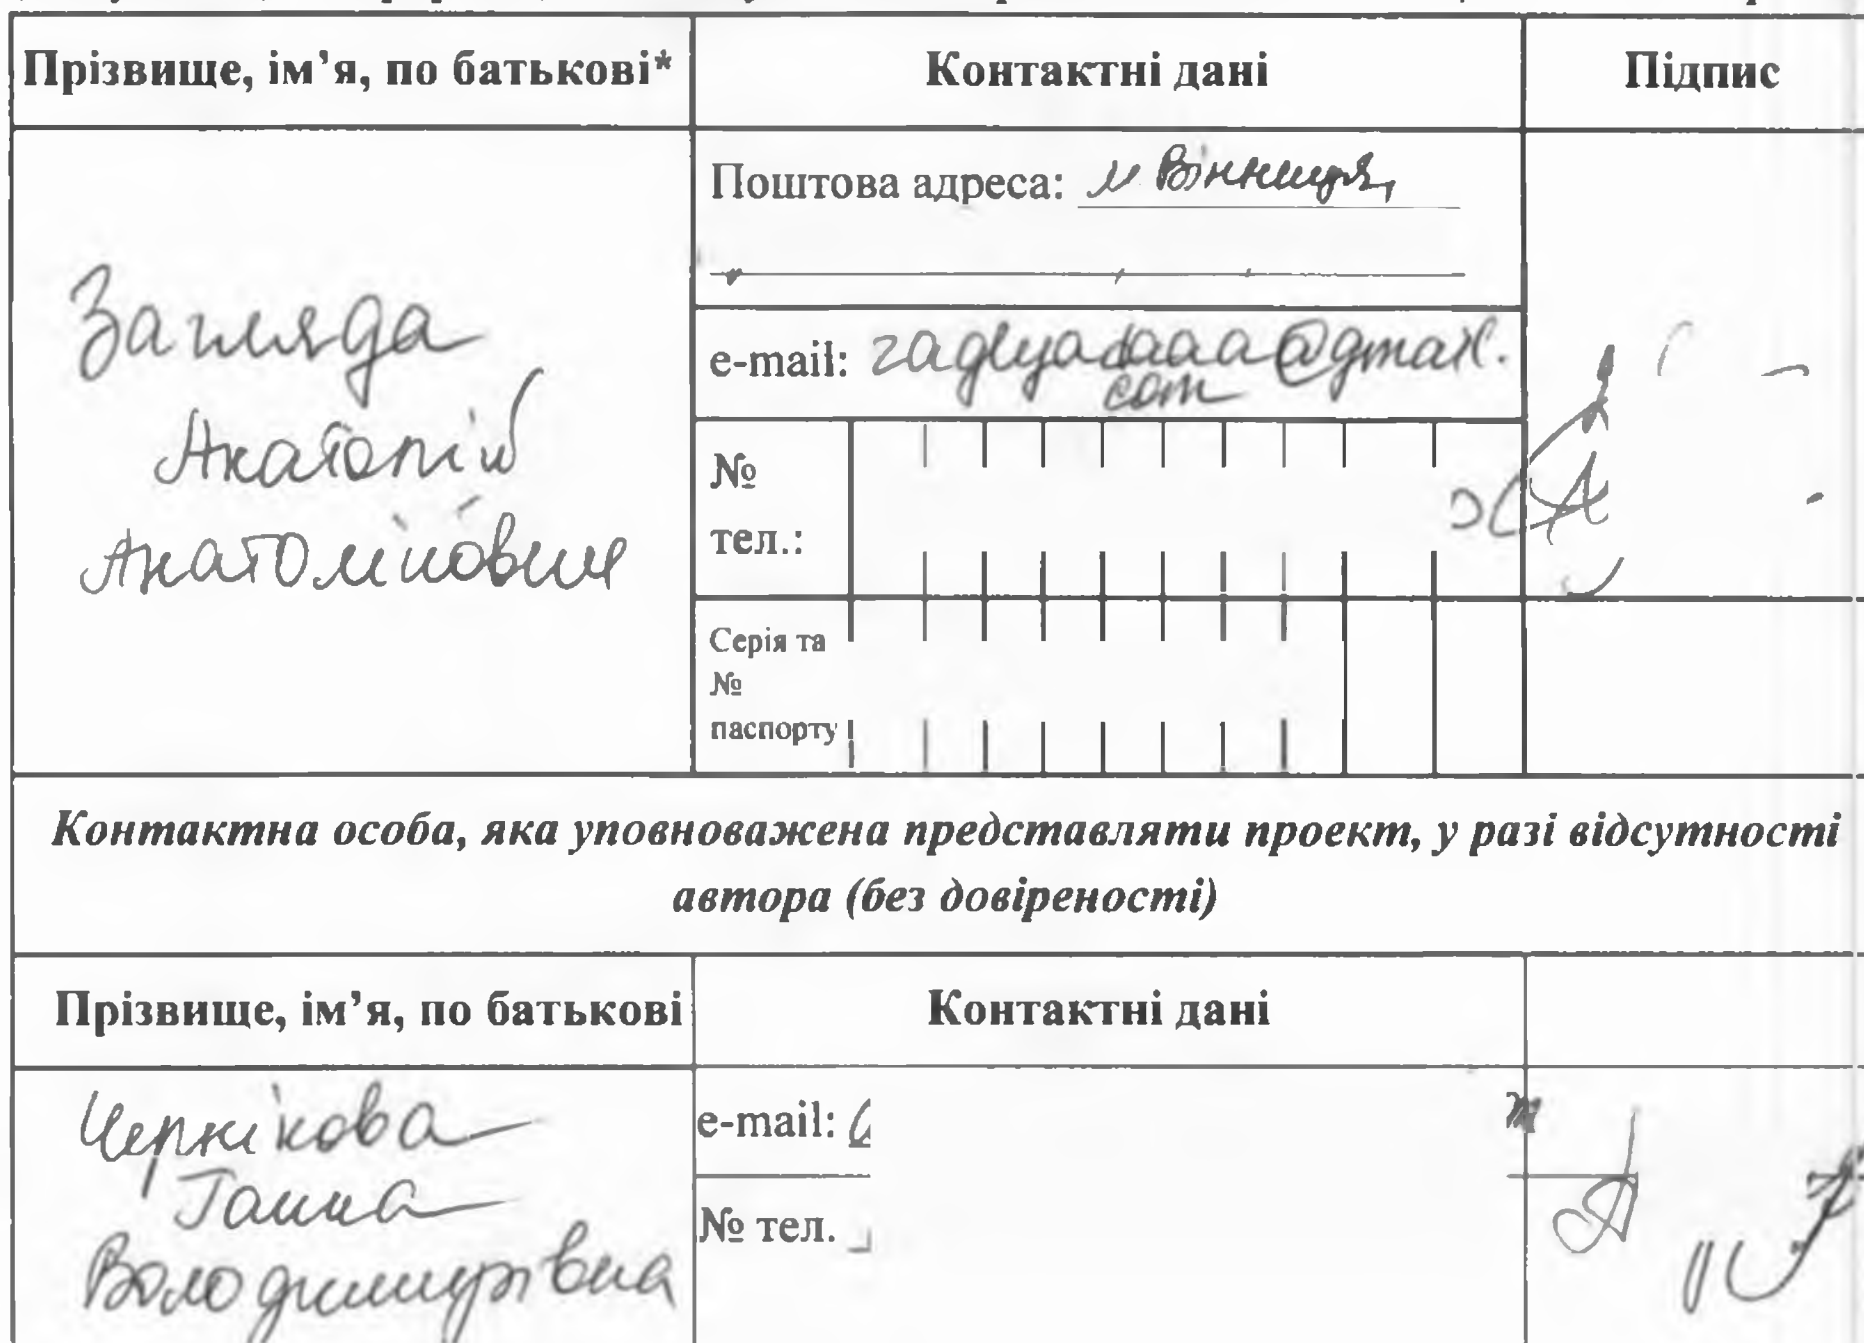 Прізвище, ім’я, по батькові*
Контактні дані
Підпис
Загляда
Анатолій
Анатолійович
Поштова адреса: м Вінниця,
e-mail: zaglyadaaa@gmail.
com
№
тел.:
Серія та
№
паспорту
Контактна особа, яка уповноважена представляти проект, у разі відсутності
автора (без довіреності)
Прізвище, ім’я, по батькові
Контактні дані
Ганна
Володимирівна
e-mail:
№ тел.